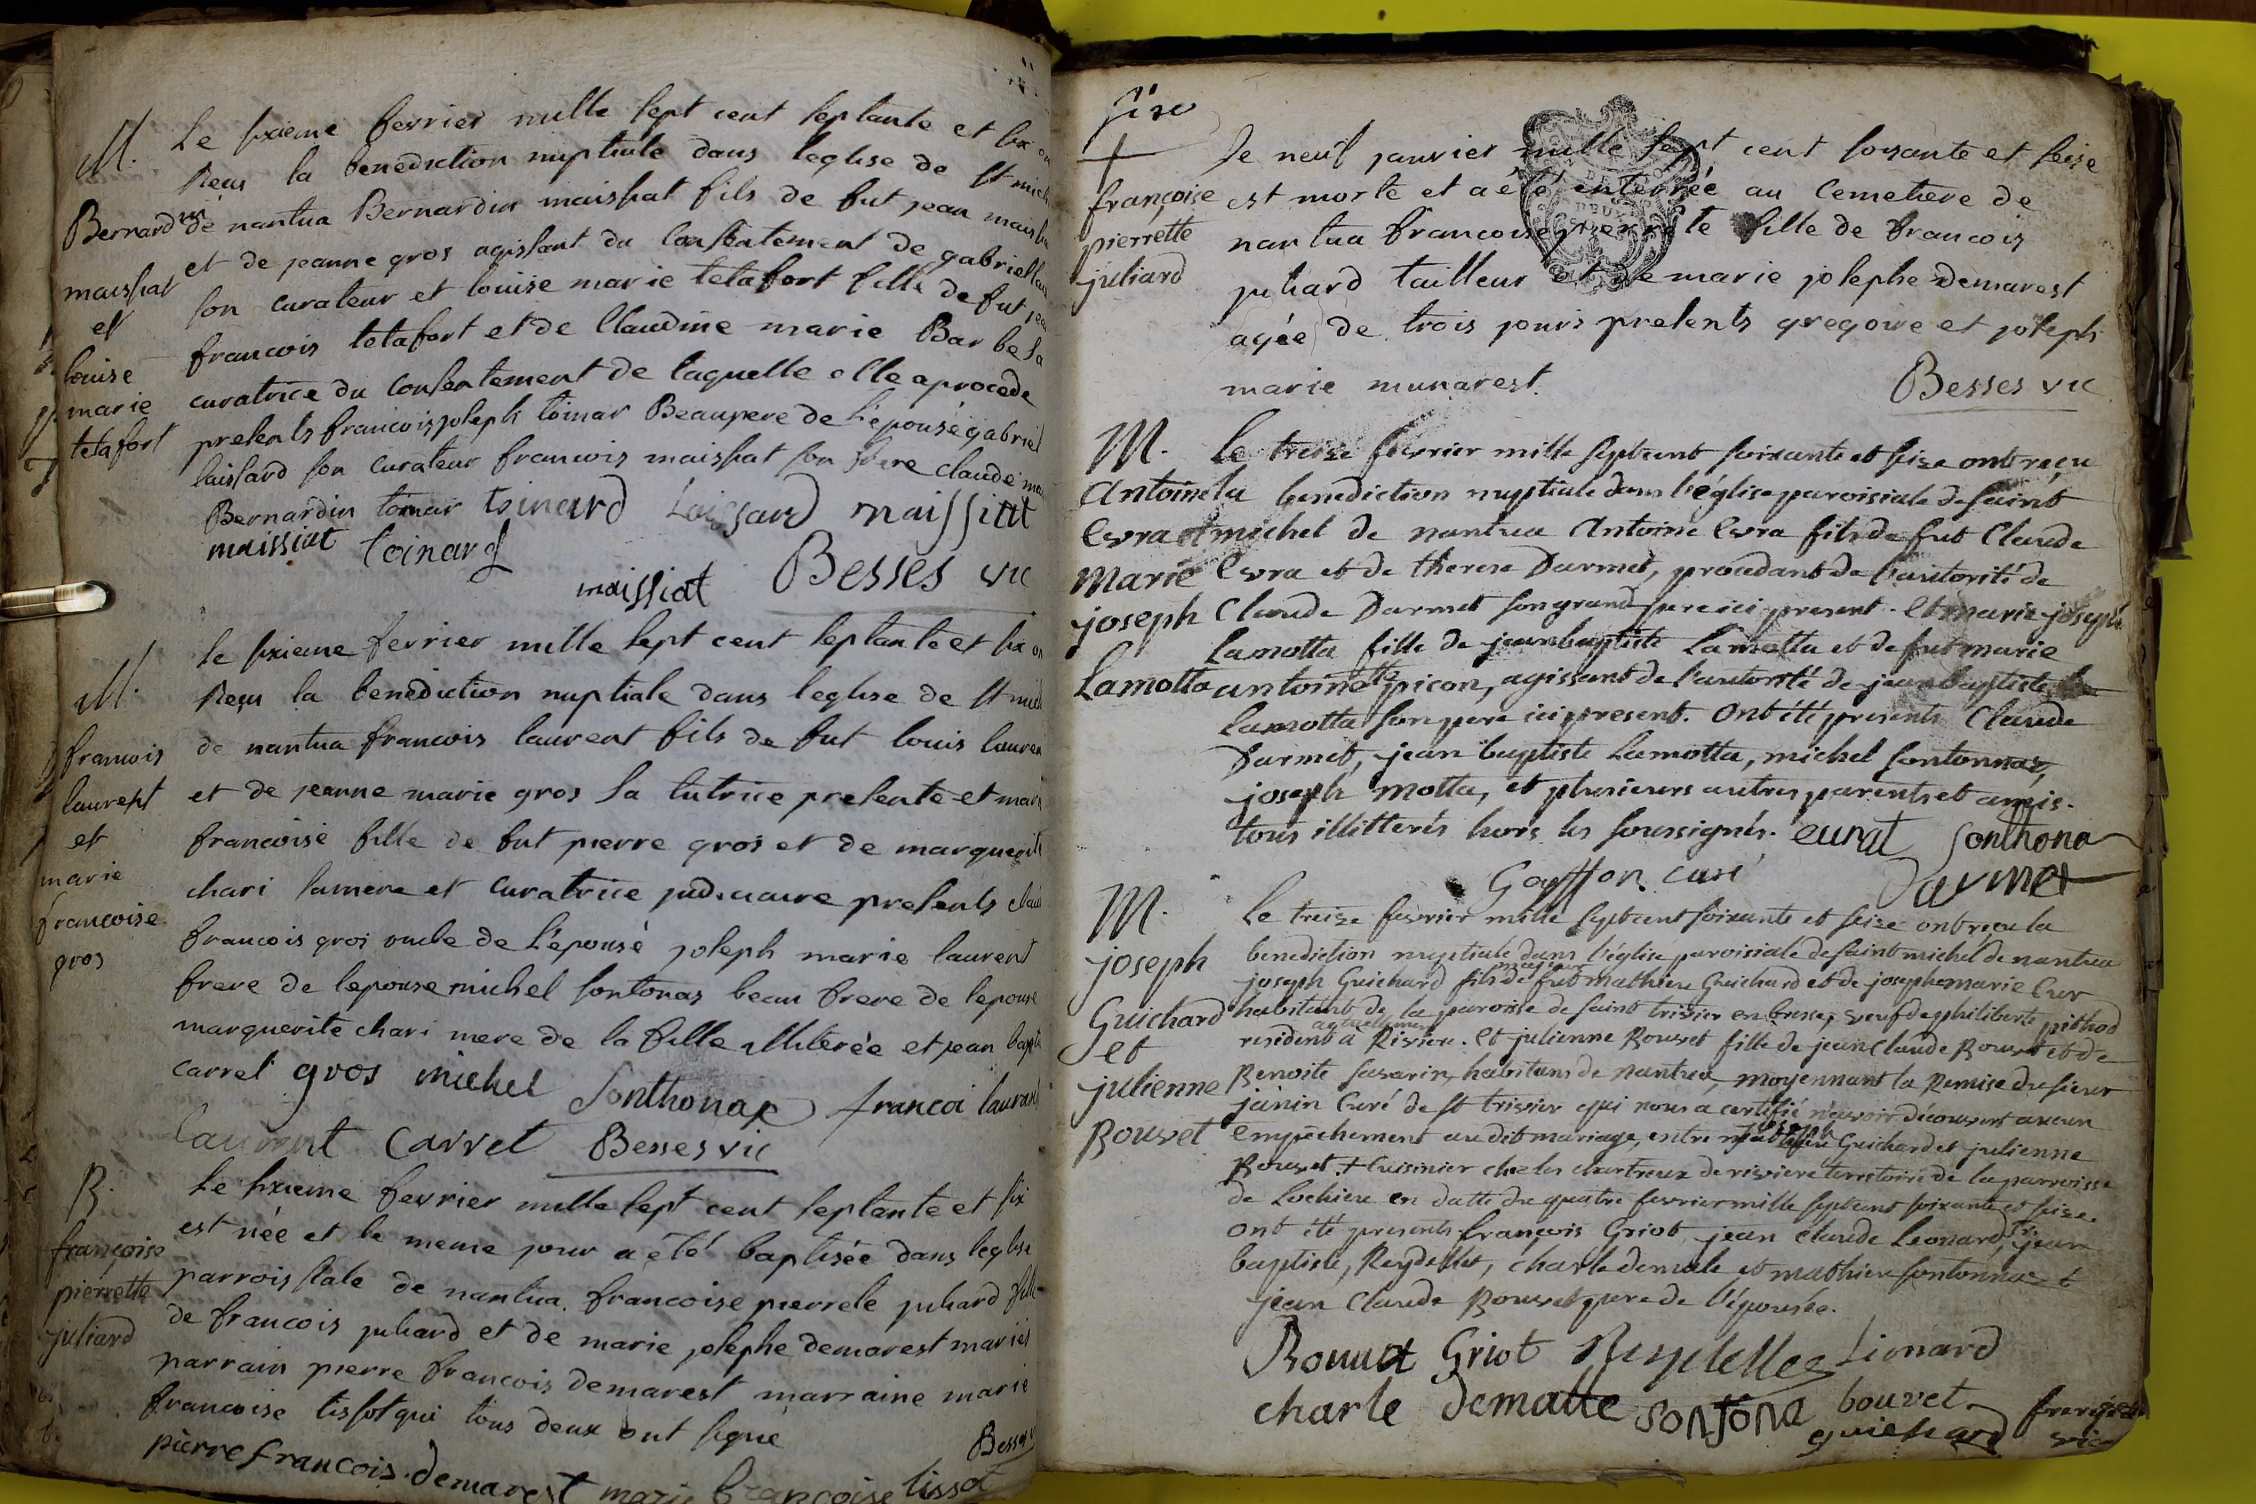 M.
Bernardin
maissiat
et
louise
marie
tetafort
Le sixieme fevrier mille sept cent septante et six on
Reçu la benediction nuptiale dans leglise de st mich
de nantua Bernardin maissiat fils de fut jean maissia
et de jeanne gros agissant du consentement de gabriel
son curateur et louise marie tetafort fille de fut jean
francois tetafort et de Claudine marie Barbe sa
curatrice du consentement de laquelle elle a procede
presents francois joseph toinar Beaupere de l'epouse gabriel
laissard son curateur francois maissiat son frere claude
Bernardin toinar toinard Laissard maissiat
maissiat toinard
maissiat Besses vic
M.
francois
laurent
et
marie
francoise
gros
le sixieme fevrier mille sept cent septante et six on
Reçu la benediction nuptiale dans leglise de st mich
de nantua francois laurent fils de fut louis lauren
et de jeanne marie gros sa tutrice presente et marie
francoise fille de fut pierre gros et de marguerite
chari sa mere et curatrice judiciaire presents
francois gros oncle de l'epousé joseph marie laurent
frere de lepouse michel sontonas beau frere de lepouse
marguerite chari mere de la fille illiterée et jean bapti
carrel gros michel Sonthonax francoi laurand
laurent Carrel Besses vic
B.
françoise
pierrette
juliard
Le sixieme fevrier mille sept cent septante et six
est née et le meme jour a été baptisée dans leglise
parroissiale de nantua francoise pierrete juliard fille
de francois juliard et de marie josephe demarest mariés
parrain pierre francois demarest marraine marie
francoise tissot qui tous deux ont signé
Besses
pierre francois demarest marie francoise tissot
sise
†
françoise
pierrette
juliard
Le neuf janvier mille sept cent soixante et seise
est morte et a été enterrée au cemetiere de
nantua francoise pierrete fille de francois
juliard tailleur et de marie josephe demarest
agée de trois jours presents gregoire et joseph
marie munarest.
Besses vic
M.
Antoine
Evra et
Marie
joseph
Lamotta
Le treize fevrier mille septcent soixante et seize ont reçu
la benediction nuptiale dans l'église paroisiale de saint
michel de nantua Antoine Evra fils de fut Claude
Evra et de therese Darmet, procedant de l'autorité de
Claude Darmet son grand pere ici present. Et marie joseph
Lamotta fille de jean baptiste Lamotta et de fut marie
antoinette picon, agissant de l'autorité de jean baptiste
lamotta son pere ici present. Ont été presents Claude
Darmet, jean baptiste Lamotta, michel sontonnaz,
joseph motta, et plusieurs autres parents et amis.
tous illitterés hors les soussignés. eurat Sonthona
Goyffon curé Darmet
M.
joseph
Guichard
et
julienne
Bouvet
Le treize fevrier mille septcent soixante et seize ont reçu la
benediction nuptiale dans l'église paroisiale de saint michel de nantua
joseph Guichard fils majeur de fut mathieu Guichard et de josephe marie
habitant de la paroisse de saint trivier en bresse, veuf de philiberte pithod
resident actuellement à Riviere. Et julienne Bouvet fille de jean Claude Bouvet et de
Benoite savarin, habitans de nantua, moyennant la Remise du sieur
janin Curé de st trivier qui nous a certifié n'avoir découvert aucun
empêchement audit mariage, entre joseph Guichard et julienne
Bouvet. + Cuisinier chez les chartreux de riviere territoire de la parroisse
de Lochieu en datte du quatre fevrier mille septcent soixante et seize.
Ont été presents françois Griot, jean claude Leonard, jean
baptiste, Reydellet, charle demale et mathieu sontonnaz et
jean Claude Bouvet pere de l'épousée.
Bouvet Griot Reydellet Lionard
charle Dematte sontona bouvet
guichard
vic